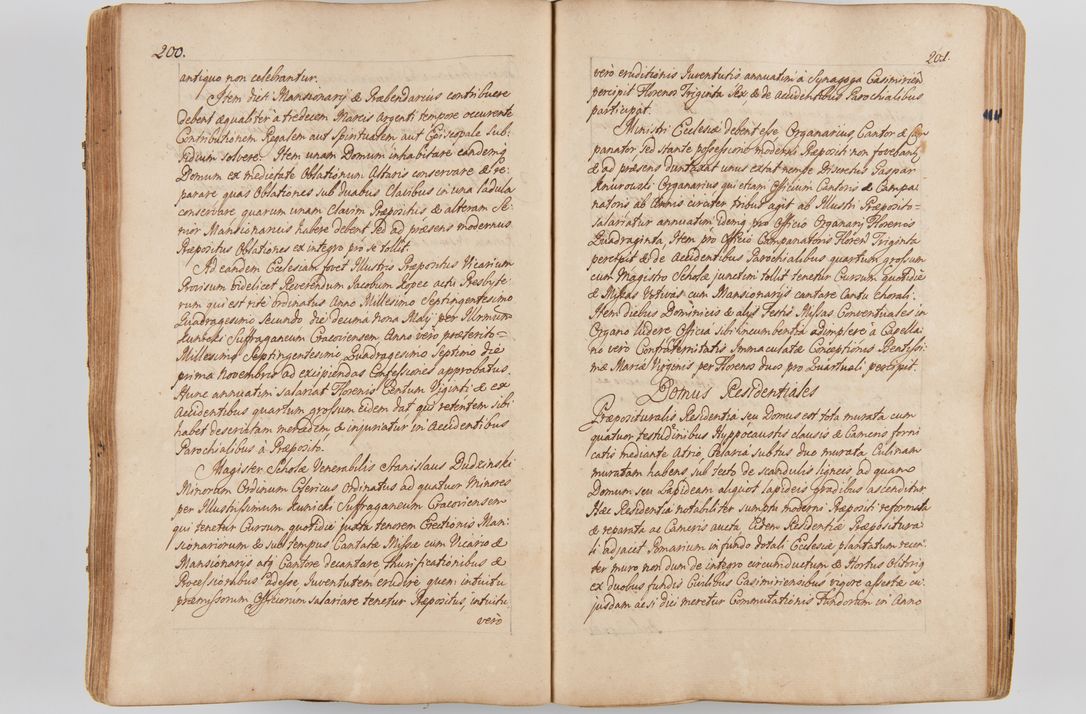 200.
antiquo non celebrantur.
Item dicti Mansionarÿ & Præbendarius contribuere
debent æqualiter à tredecem Marcis Argenti tempore occurente
Contributionem Regalem aut Spiritualem aut Episcopale Sub:
sidium solvere. Item unam Domum inhabitare eandemq
Domum ex medietate Oblationum Altaris conservare & re:
parare quas Oblationes sub duabus Clavibus in una ladula
conservare quarum unam Clavim Præpositus & alteram Se:
nior Mansionarius habere debent sed ad præsens modernus
Præpositus Oblationes ex integro pro se tollit.
Ad eandem Ecclesiam fovet Illustris Præpositus Vicarium
Provisum videlicet Reverendum Jacobum Kopec actu Presbyte:
rum qui est rite ordinatus Anno Millesimo Septingentesimo
Quadragesimo Secundo die decima Nona Maÿ per Illrmum
Kunicki Suffraganeum Cracoviensem Anno vero præterito
Millesimo Septingentesimo Quadragesimo Septimo die
prima Novembris ad excipiendas Confessiones approbatus.
Hunc annuatim salariat Florenis Centum Viginti & ex
Accidentibus quartum grossum Eidem dat qui retentem sibi
habet deservitam mercedem & injuriatur in Accidentibus
Parochialibus à Præposito.
Magister Scholæ Venerabilis Stanislaus Dudzinski
Minorum Ordinum Clericus Ordinatus ad quatuor Minores
per Illustrissimum Kunicki Suffraganeum Cracoviensem
qui tenetur Cursum quotidie juxta tenorem Erectionis Man:
sionariorum & sub tempus Cantatæ Missæ cum Vicario &
Mansionarÿs atq Cantore decantare thurificationibus &
Processionibus adesse Juventutem erudire quem intuitu
præmissorum Officiorum salariare tenetur Præpositus, intuitu
vero
201.
vero eruditionis Juventutis annuatim à Synagoga Casimirien
percipit Florenos Triginta Sex, & de Accidentibus Parochialibus
participat.
Ministri Ecclesiæ debent esse Organarius, Cantor &
panator sed stante possessione moderni Præpositi non foventur
& ad præsens duntaxat unus extat nempe Discretus Caspar
Organarius qui etiam Officium Cantoris & Campa:
natoris ab Annis circiter tribus agit ab Illustri Præposito
salariatur annuatim idemq pro Officio Organarÿ Florenis
Quadraginta, Item pro Officio Companatoris Floren Triginta
percipit & de Accidentibus Parochialibus quartum grossum
cum Magistro Scholæ junctim tollit tenetur Cursum quotidie
& Missas Votivas cum Mansionarÿs cantare Cantu chorali.
Item diebus Dominicis & alÿs Festis Missas Conventuales in
Organo ludere Officia sibi incumbentia adimplere à Capella:
no vero Confraternitatis Immaculatæ Conceptionis Beatissi:
mæ Mariæ Virginis per Florenos duos pro Quartuali percipit.
Domus Residentiales
Præposituralis Residentia seu Domus est tota murata cum
quatuor testudinibus Hÿppocaustis clausis & Cameris forni
catis mediante Atrio, Celaria subtus duo murata Culinam
muratam habens, sub tecto de scandulis ligneis ad quam
Domum seu Lapideam aliquot lapideis gradibus ascenditur
Hæc Residentia notabiliter sumptu moderni Præpositi reformata
& reparata ac Cameris aucta. Eidem Residentiæ Præpositura
li adjacet Pomarium in fundo dotali Ecclesiæ plantatum recen:
ter muro non dum de integro circumductum & Hortus Olitoriq
ex duobus fundis Civilibus Casimiriensibus vigore assertæ cu:
jusdam ac si dici meretur Commutationis Fundorum in Anno